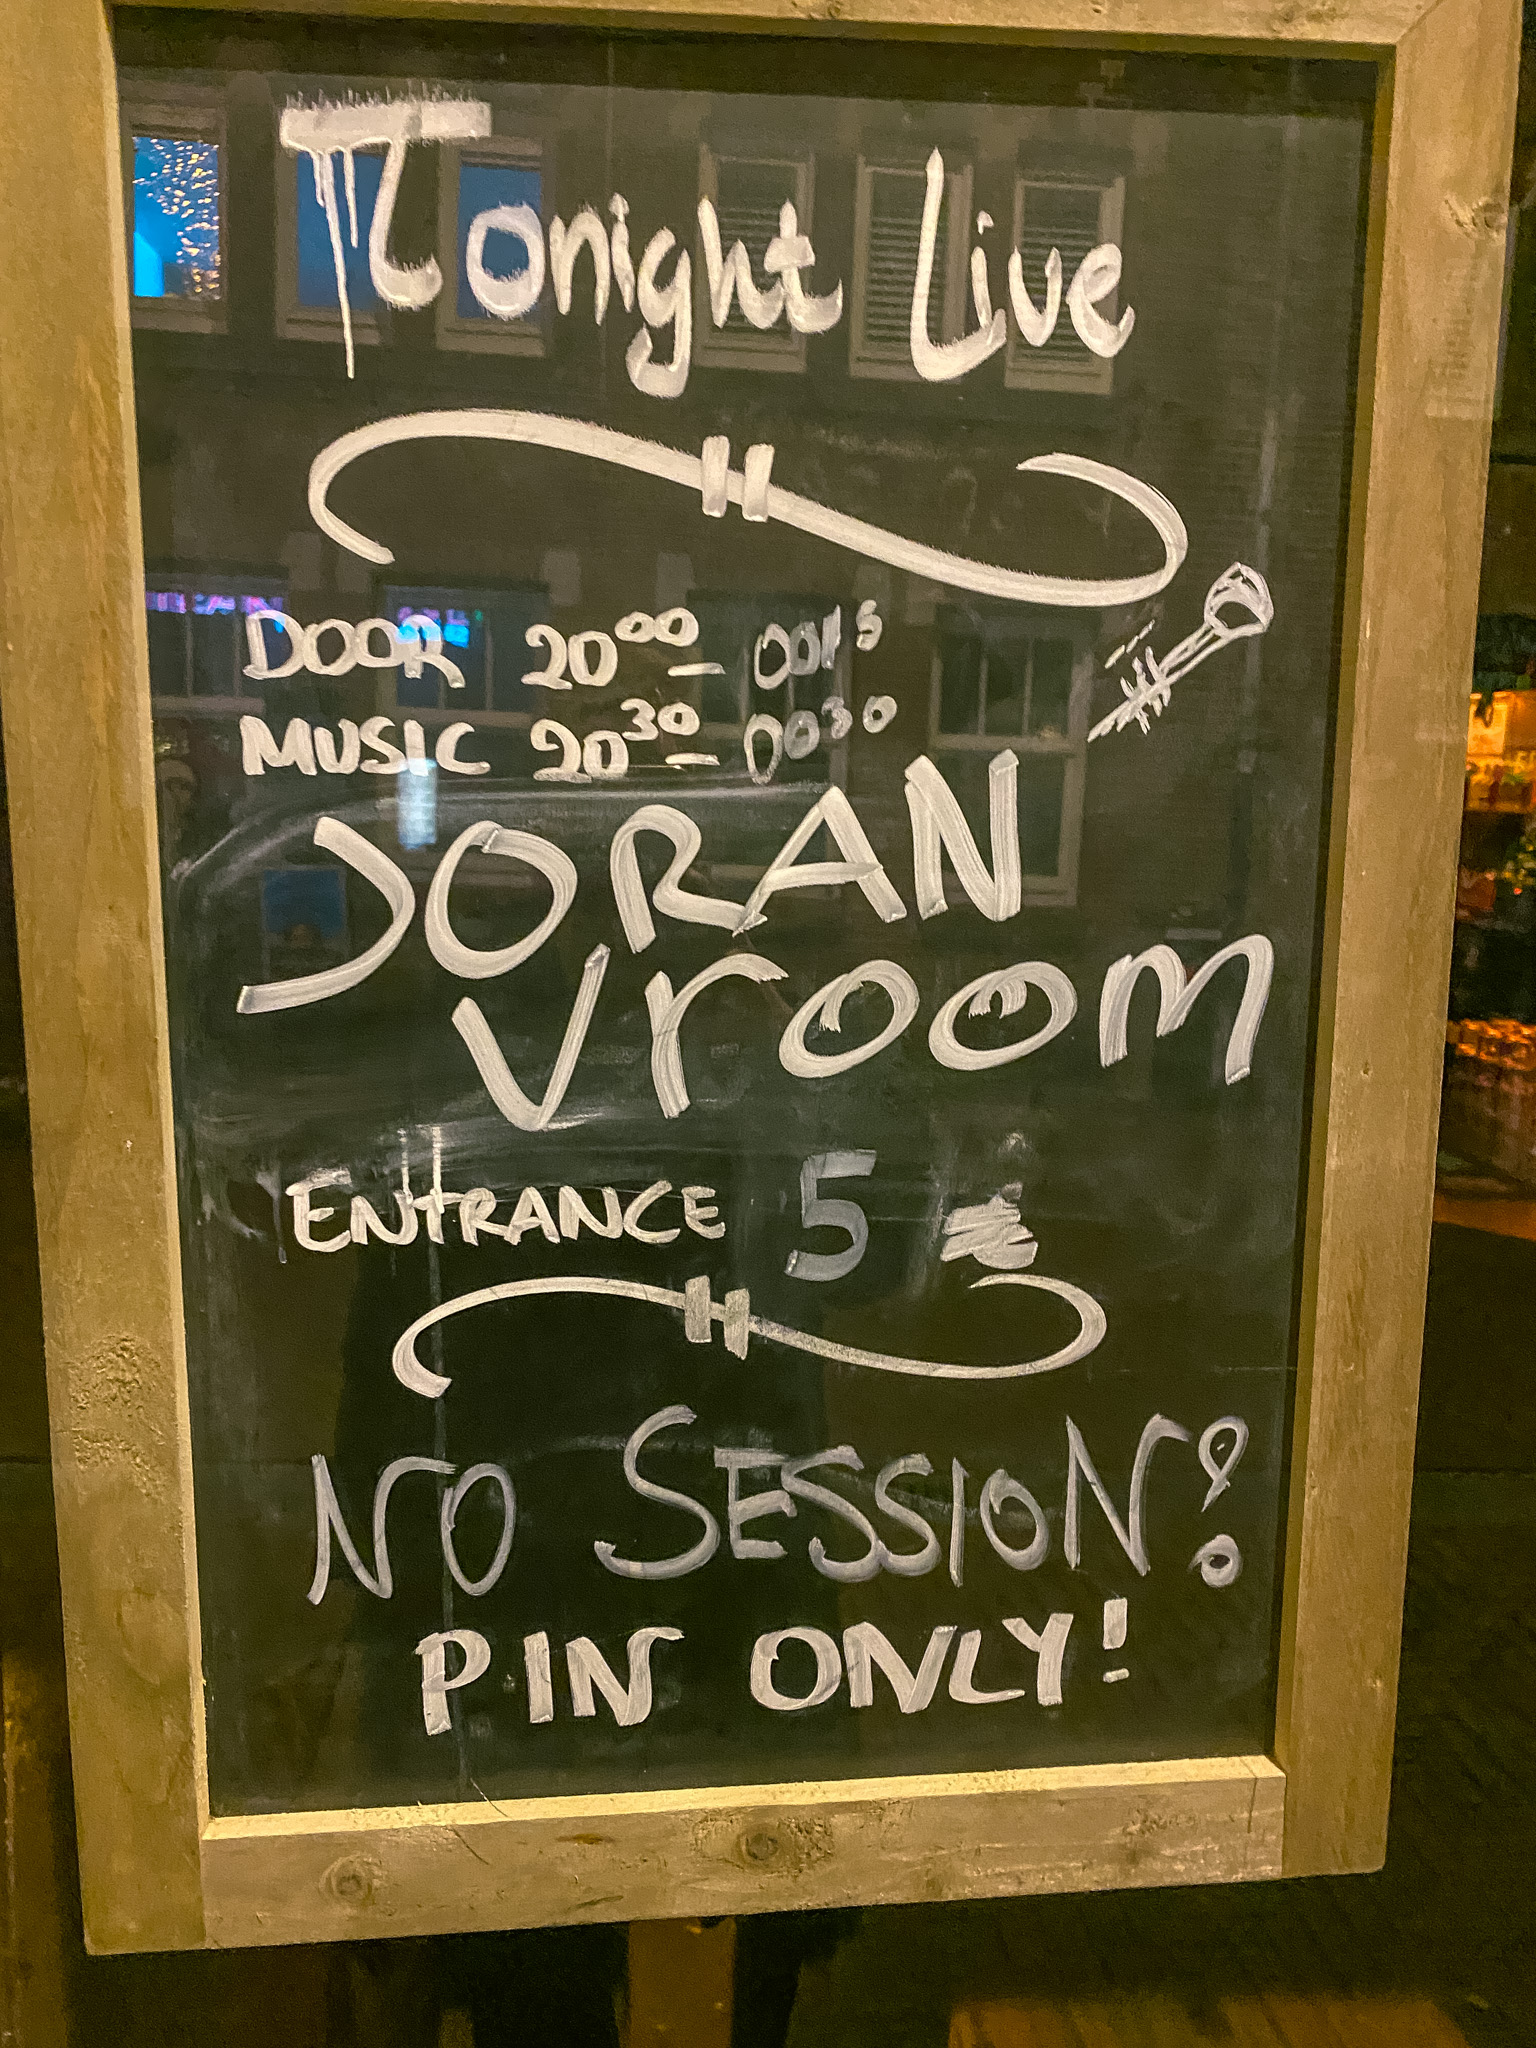 Tonight Live
DOOR 20⁰⁰ – 00¹⁵
MUSIC 20³⁰ – 00³⁰
JORAN
Vroom
ENTRANCE 5
NO SESSION!
PIN ONLY!